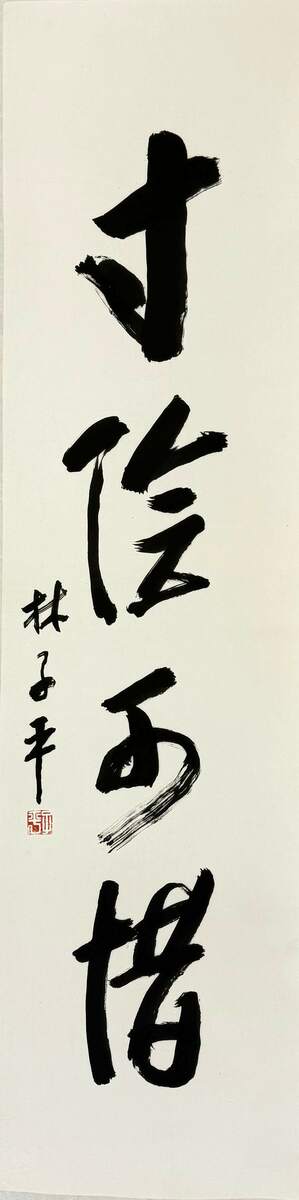 寸陰可惜
林子平